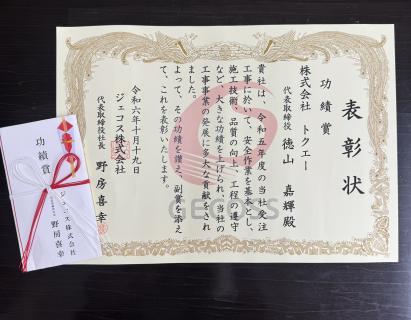 表彰状
功績賞
株式会社 トクエー
代表取締役 徳山 嘉輝殿
貴社は、令和五年度の当社受注
工事に於いて、安全作業を基本とし、
施工技術、品質の向上、工程の遵守
など、大きな功績を上げられ、当社の
工事事業の発展に多大な貢献をされ
ました。
よって、その功績を讃え、副賞を添え
て、これを表彰いたします。
令和六年十月十九日
ジェコス株式会社
代表取締役社長 野房喜幸
GECOSS
功績賞
ジェコス株式会社
野房喜幸